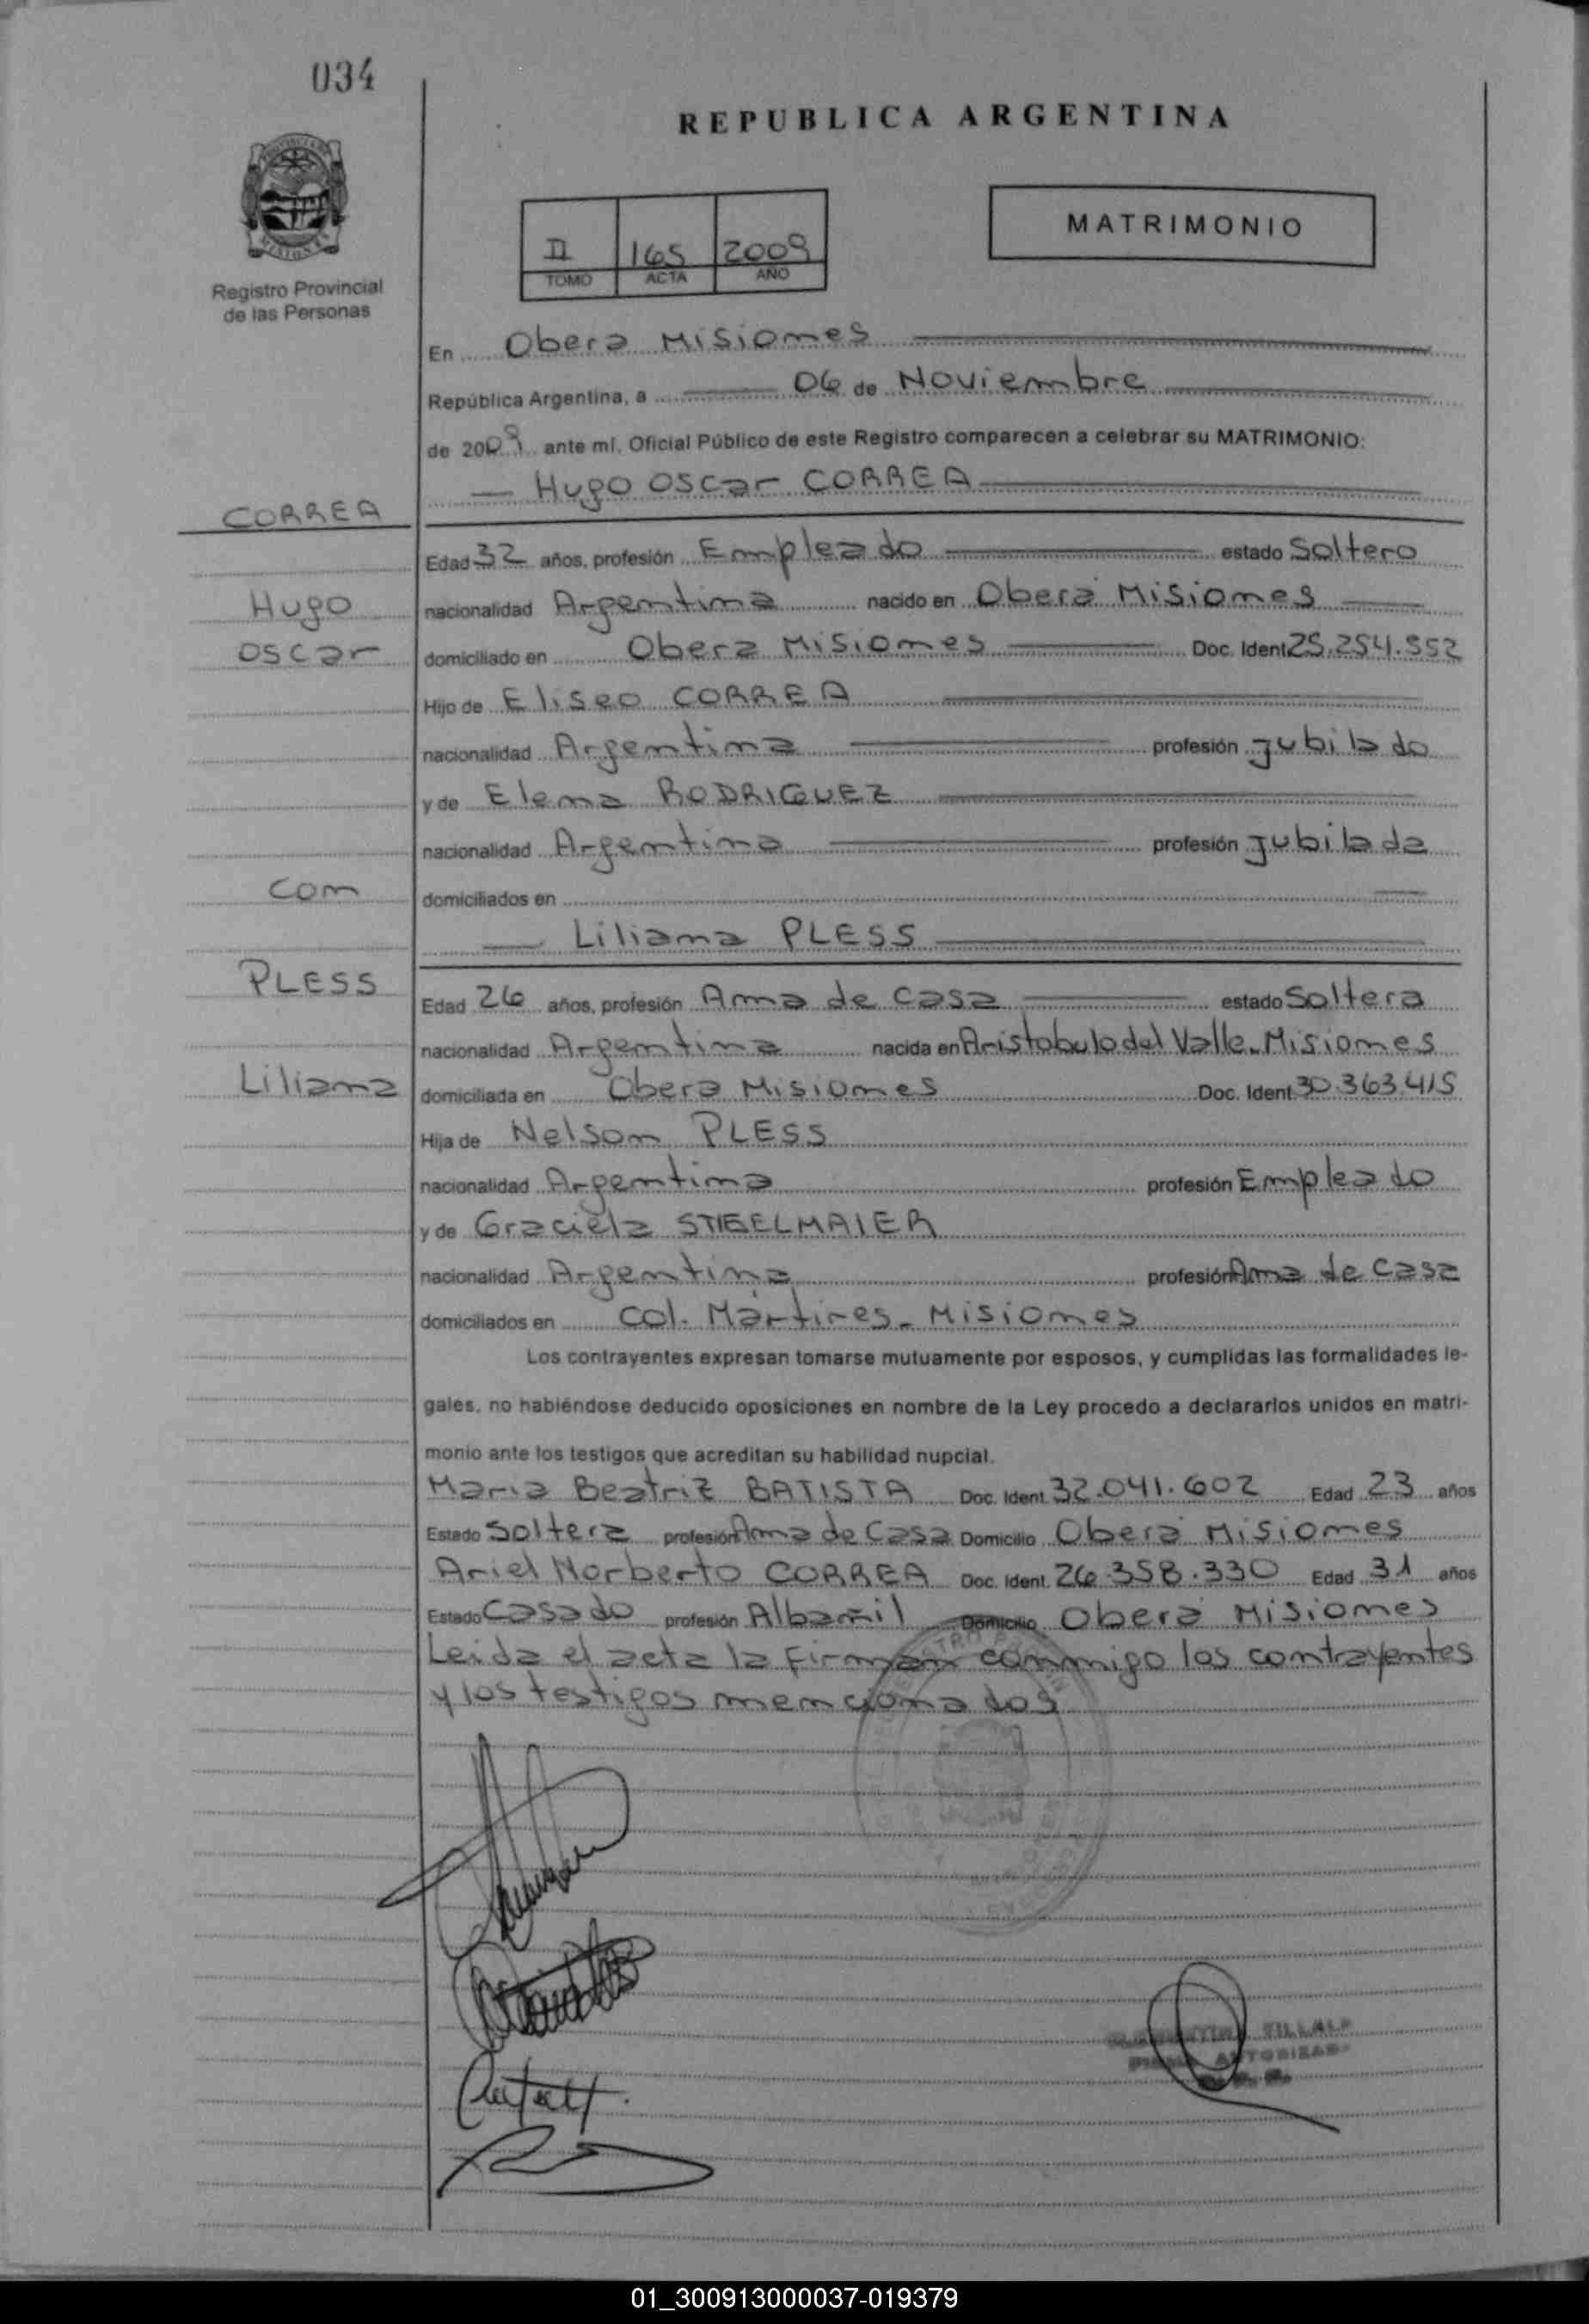 034
REPUBLICA ARGENTINA
MATRIMONIO
II 165 2009
TOMO ACTA AÑO
Registro Provincial
de las Personas
En Obera Misiones
República Argentina, a 06 de Noviembre
de 2009 ante mí, Oficial Público de este Registro comparecen a celebrar su MATRIMONIO:
Hugo Oscar CORREA
CORREA
Edad 32 años, profesión Empleado estado Soltero
Hugo
nacionalidad Argentina nacido en Oberá Misiones
Oscar
domiciliado en Obera Misiones Doc. Ident 25.254.552
Hijo de Eliseo CORREA
nacionalidad Argentina profesión Jubilado
y de Elena RODRIGUEZ
nacionalidad Argentina profesión Jubilada
con
domiciliados en
Liliana PLESS
PLESS
Edad 26 años, profesión Ama de Casa estado Soltera
nacionalidad Argentina nacida en Aristobulo del Valle. Misiones
Liliana
domiciliada en Obera Misiones Doc. Ident 30.363.415
Hija de Nelson PLESS
nacionalidad Argentina profesión Empleado
y de Graciela STIEELMAIER
nacionalidad Argentina profesión Ama de Casa
domiciliados en Col. Mártires - Misiones
Los contrayentes expresan tomarse mutuamente por esposos, y cumplidas las formalidades le-
gales, no habiéndose deducido oposiciones en nombre de la Ley procedo a declararlos unidos en matri-
monio ante los testigos que acreditan su habilidad nupcial.
Maria Beatriz BATISTA Doc. Ident. 32.041.602 Edad 23 años
Estado Soltera profesión Ama de Casa Domicilio Oberá Misiones
Ariel Norberto CORREA Doc. Ident. 26.358.330 Edad 31 años
Estado Casado profesión Albañil Domicilio Oberá Misiones
Leida el acta la firman conmigo los contrayentes
y los testigos mencionados
01_300913000037-019379